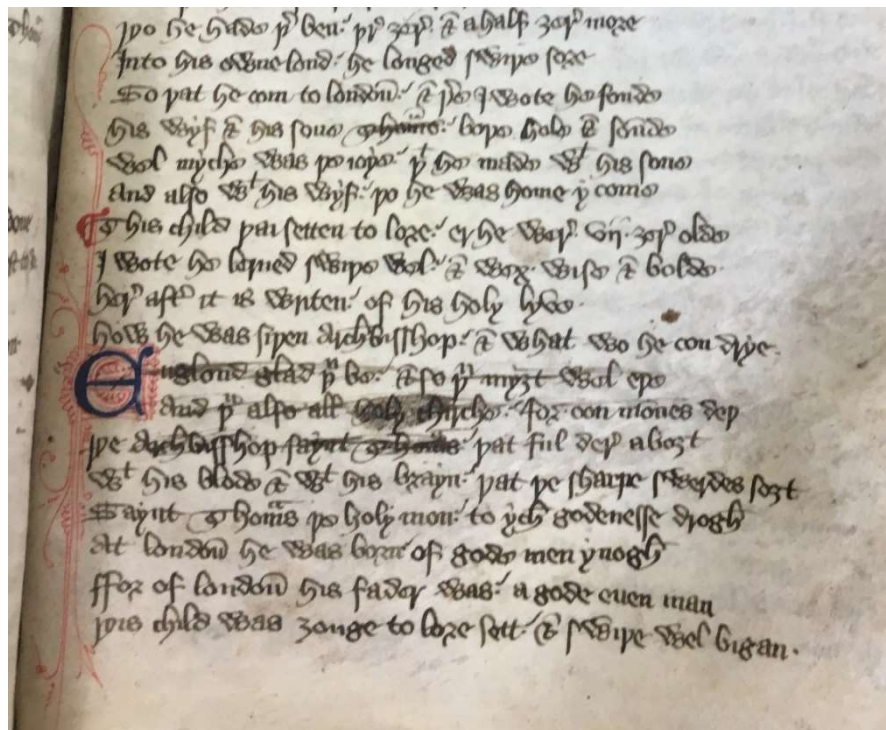 þo he hade þer ben: þre ȝer & a half ȝer more
Into his owne lond: he longed swiþe sore
So þat he com to london: & þer I wote he fonde
his wyf & his sone thomas: boþe hole & sonde
Wel myche was þe ioye: þt he made wt his sone
And also wt his wyf: þo he was home y come
This child þai setten to lore: er he wer vii ȝer olde
I wote he lerned swiþe wel: & wex wise & bolde
her aftr it is writen: of his holy lyve
how he was siþen archbisshop: & what wo he con drye
Englond glad þu be: & so þu myȝt wel eþe
And þu also all holy chirche: for oon mones deþ
þe Archbisshop saynt thomas þat ful der aboȝt
Wt his blode & wt his brayn: þat þe sharpe swerdes soȝt
Saynt Thomas þe holy mon: to ych godenesse drogh
At london he was born of gode men ynogh
ffor of london his fader was: a gode euen man
þis child was ȝonge to lore sett: & swiþe wel bigan